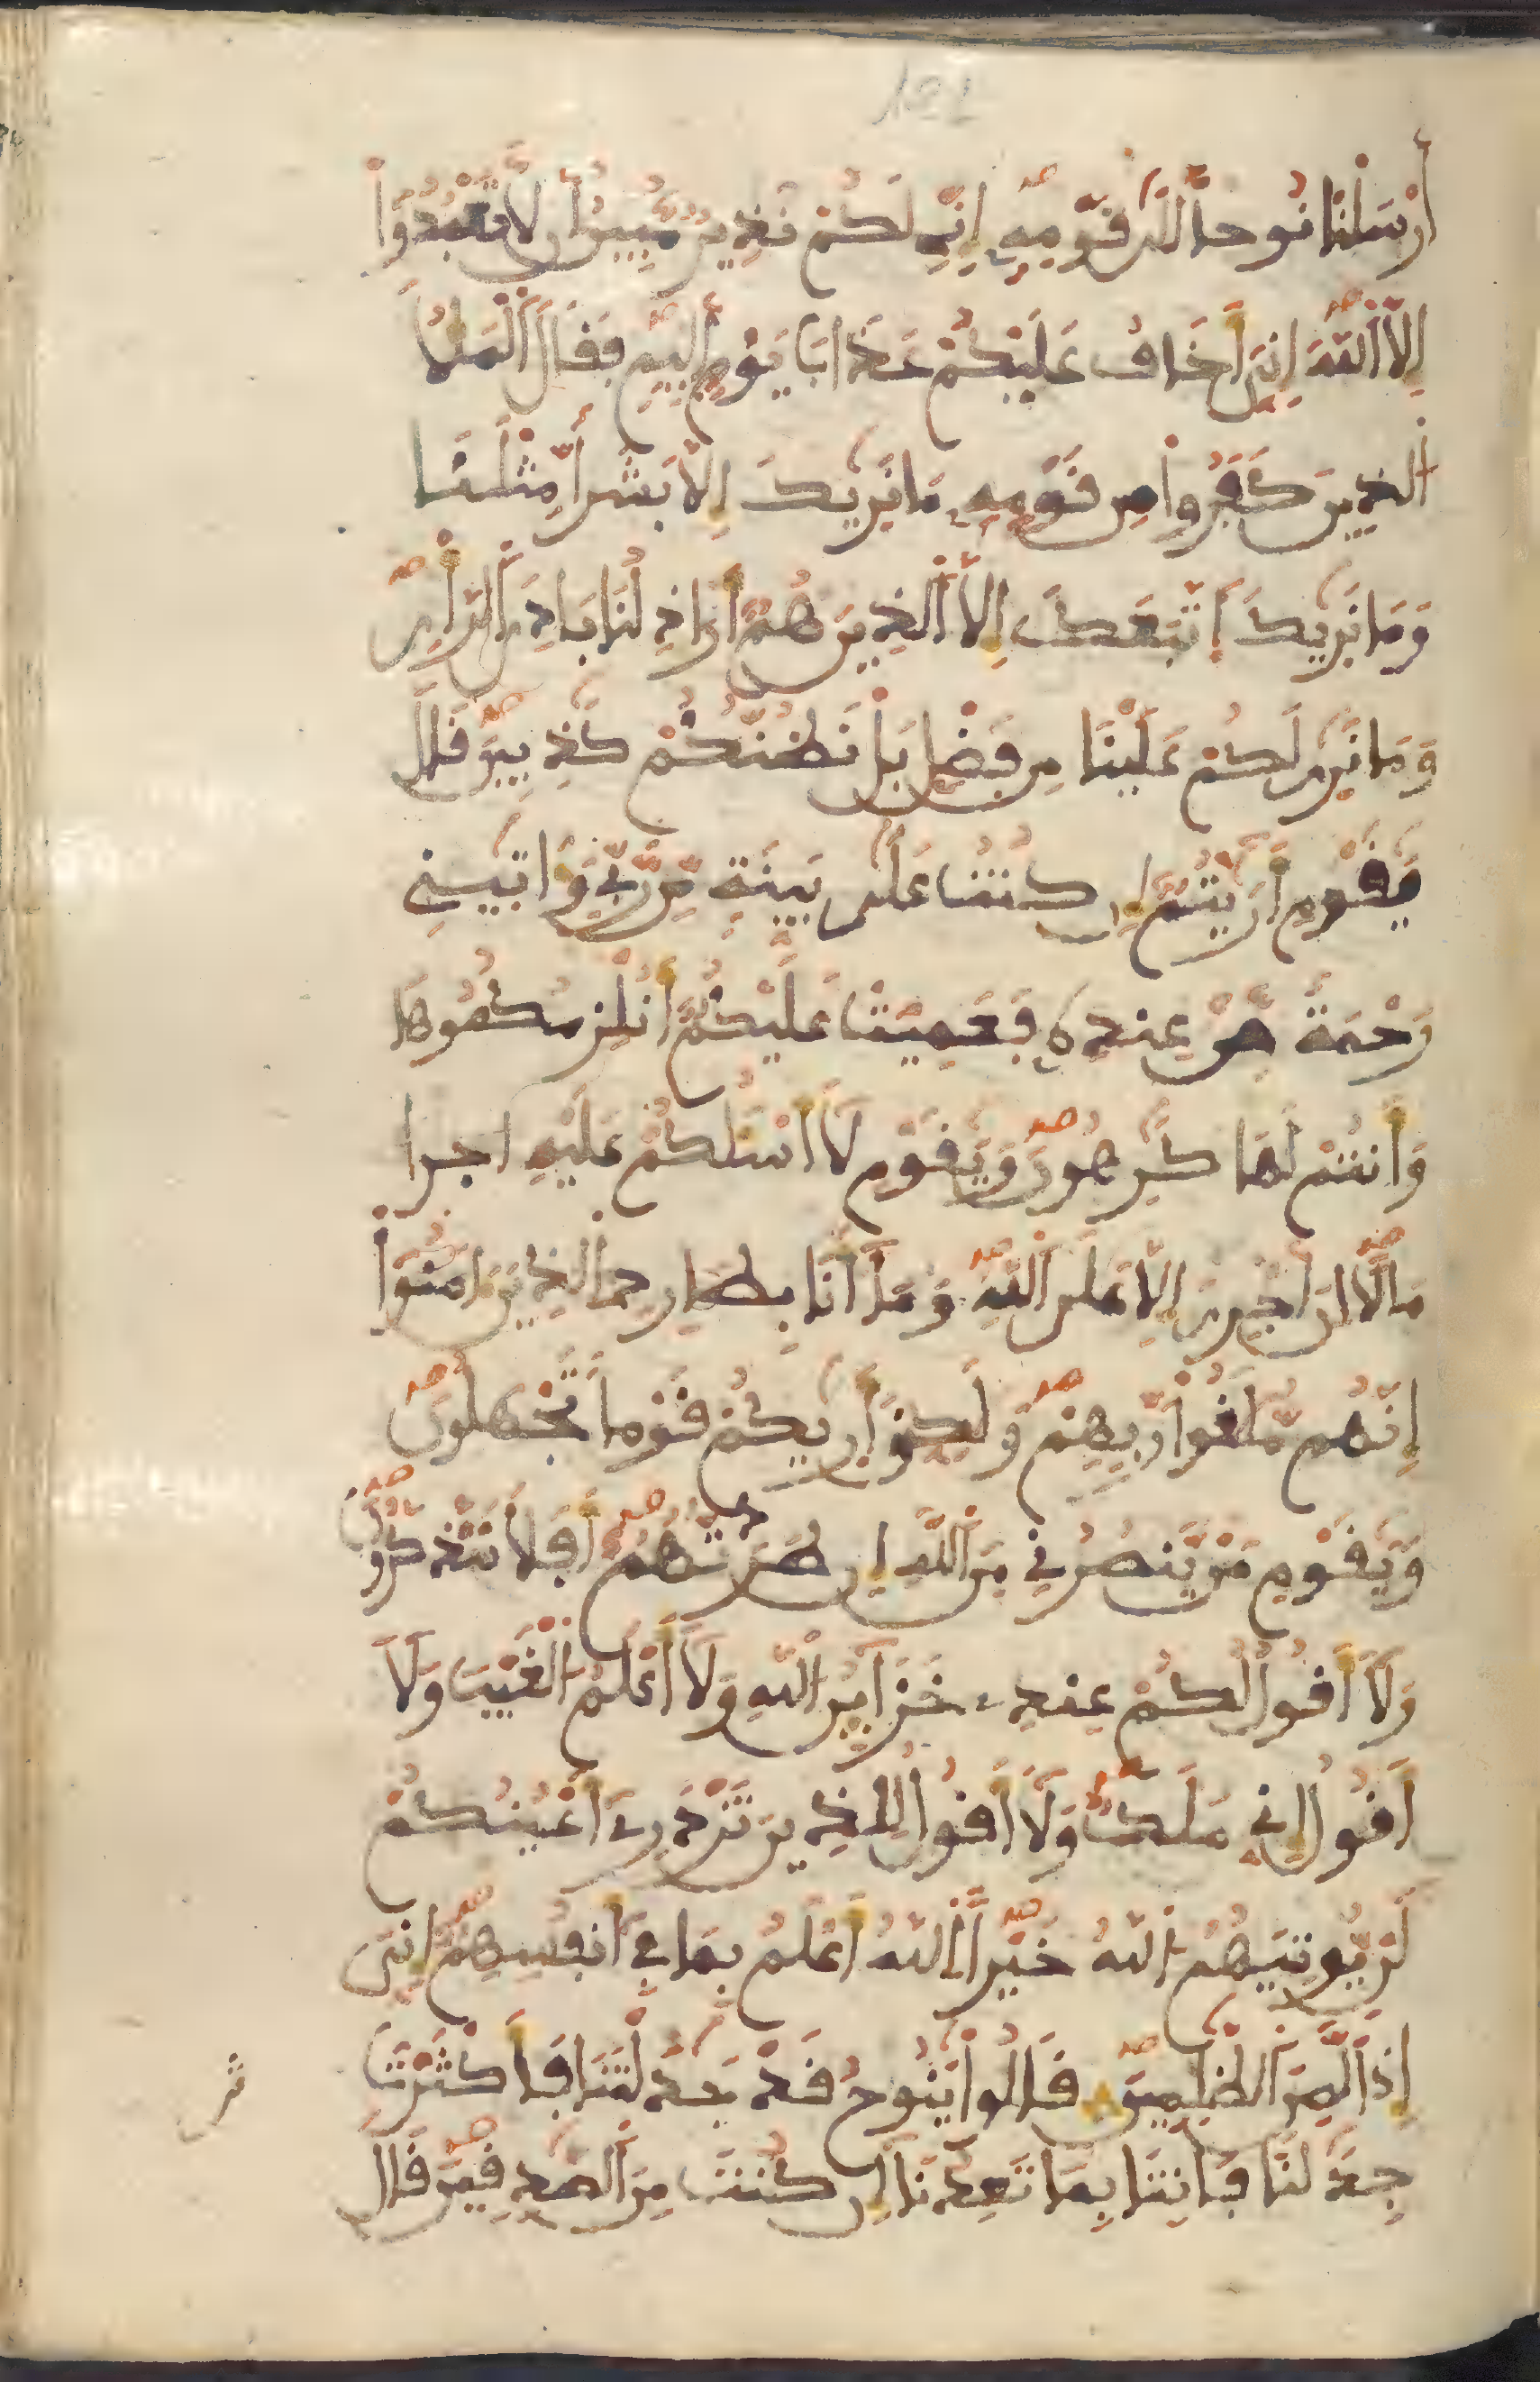 121
أَرْسَلْنَا نُوحاً إِلَىٰ قَوْمِهِۦ إِنِّے لَكُمْ نَذِيرٌ مُّبِينٌ أَن لَّا تَعْبُدُوٓاْ
إِلَّا اَللَّهَ إِنِّيَ أَخَافُ عَلَيْكُمْ عَذَابَ يَوْمٍ اَلِيمٍ فَقَالَ اَلْمَلَأُ
اُلذِينَ كَفَرُواْ مِن قَوْمِهِۦ مَا نَرَيٰكَ إِلَّا بَشَراً مِّثْلَنَا
وَمَا نَرَيٰكَ اَتَّبَعَكَ إِلَّا اَلذِينَ هُمُۥٓ أَرَاذِلُنَا بَادِيَ اَلرَّأْيِ
وَمَا نَرَيٰ لَكُمْ عَلَيْنَا مِن فَضْلٍ بَلْ نَظُنُّكُمْ كَٰذِبِينَ قَالَ
يَٰقَوْمِ أَرَٰٓيْتُمُۥٓ إِن كُنتُ عَلَىٰ بَيِّنَةٍ مِّن رَّبِّے وَءَاتَيٰنِے
رَحْمَةً مِّنْ عِندِهِۦ فَعَمِيَتْ عَلَيْكُمُۥٓ أَنُلْزِمُكُمُوهَا
وَأَنتُمْ لَهَا كَٰرِهُونَ وَيَٰقَوْمِ لَآ أَسْـَٔلُكُمْ عَلَيْهِ أَجْراً
مَالاً اِنَ اَجْرِيَ إِلَّا عَلَى اَللَّهِ وَمَآ أَنَا بِطَارِدِ اِلذِينَ ءَامَنُوٓاْ
إِنَّهُم مُّلَٰقُواْ رَبِّهِمْ وَلَٰكِنِّيَ أَرَيٰكُمْ قَوْماً تَجْهَلُونَ
وَيَٰقَوْمِ مَنْ يَّنصُرُنِے مِنَ اَللَّهِ إِن طَرَدتُّهُمُۥٓ أَفَلَا تَذَّكَّرُونَ
وَلَآ أَقُولُ لَكُمْ عِندِے خَزَآئِنُ اُللَّهِ وَلَآ أَعْلَمُ اُلْغَيْبَ وَلَآ
أَقُولُ إِنِّے مَلَكٌ وَلَآ أَقُولُ لِلذِينَ تَزْدَرِےٓ أَعْيُنُكُمْ
لَنْ يُّوتِيَهُمُ اُللَّهُ خَيْراً اَللَّهُ أَعْلَمُ بِمَا فِےٓ أَنفُسِهِمُۥٓ إِنِّيَ
إِذاً لَّمِنَ اَلظَّٰلِمِينَ قَالُواْ يَٰنُوحُ قَدْ جَٰدَلْتَنَا فَأَكْثَرْتَ
جِدَٰلَنَا فَاتِنَا بِمَا تَعِدُنَآ إِن كُنتَ مِنَ اَلصَّٰدِقِينَ قَالَ